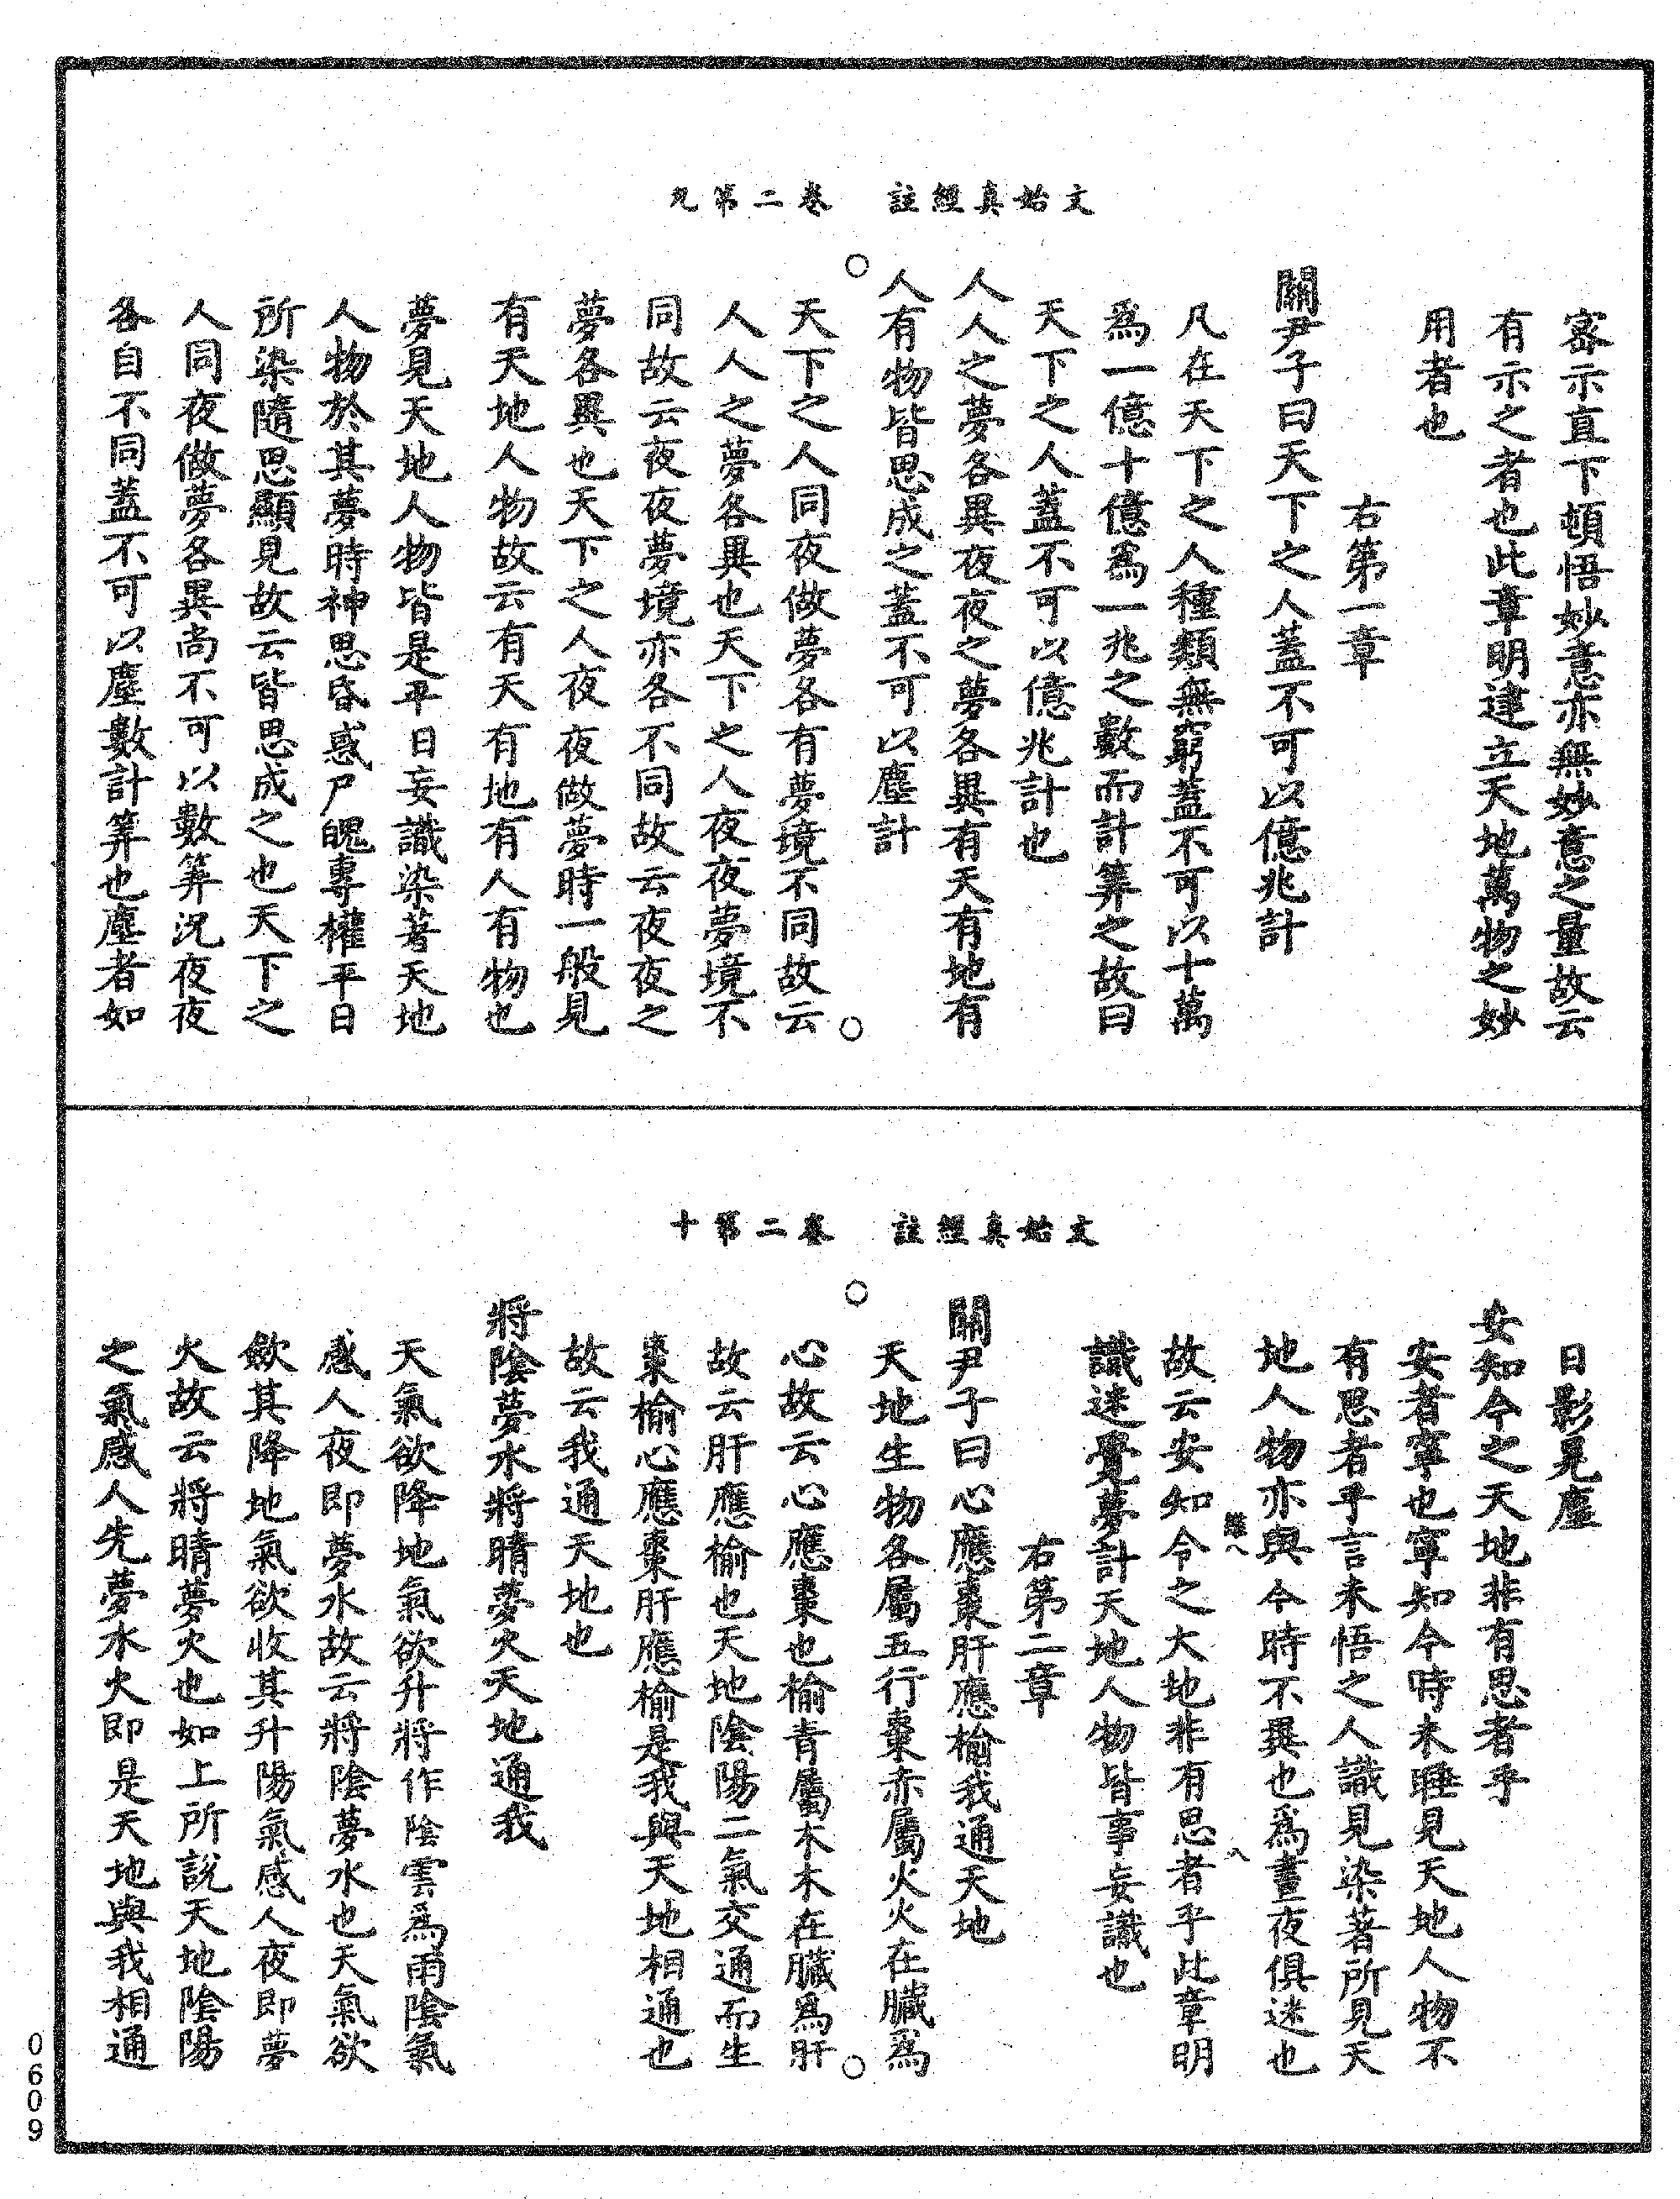 文始真經註　卷二第九
密示直下頓悟妙意亦無妙意之量故云
有示之者也此章明建立天地萬物之妙
用者也
右第一章
關尹子曰天下之人蓋不可以億兆計
凡在天下之人種類無窮蓋不可以十萬
爲一億十億爲一兆之數而計筭之故曰
天下之人蓋不可以億兆計也
人人之夢各異夜夜之夢各異有天有地有
人有物皆思成之蓋不可以塵計
天下之人同夜做夢各有夢境不同故云
人人之夢各異也天下之人夜夜夢境不
同故云夜夜夢境亦各不同故云夜夜之
夢各異也天下之人夜夜做夢時一般見
有天地人物故云有天有地有人有物也
夢見天地人物皆是平日妄識染著天地
人物於其夢時神思昏惑尸魄專權平日
所染隨思顯見故云皆思成之也天下之
人同夜做夢各異尚不可以數筭況夜夜
各自不同蓋不可以塵數計筭也塵者如
文始真經註　卷二第十
日影見塵
安知今之天地非有思者乎
安者寧也寧知今時未睡見天地人物不
有思者乎言未悟之人識見染著所見天
地人物亦與今時不異也爲晝夜俱迷也
故云安知今之大地非有思者乎此章明
識迷覺夢計天地人物皆事妄識也
右第二章
關尹子曰心應棗肝應榆我通天地
天地生物各屬五行棗赤屬火火在臟爲
心故云心應棗也榆青屬木木在臟爲肝
故云肝應榆也天地陰陽二氣交通而生
棗榆心應棗肝應榆是我與天地相通也
故云我通天地也
將陰夢水將晴夢火天地通我
天氣欲降地氣欲升將作陰雲爲雨陰氣
感人夜即夢水故云將陰夢水也天氣欲
斂其降地氣欲收其升陽氣感人夜即夢
火故云將晴夢火也如上所說天地陰陽
之氣感人先夢水火即是天地與我相通
0609